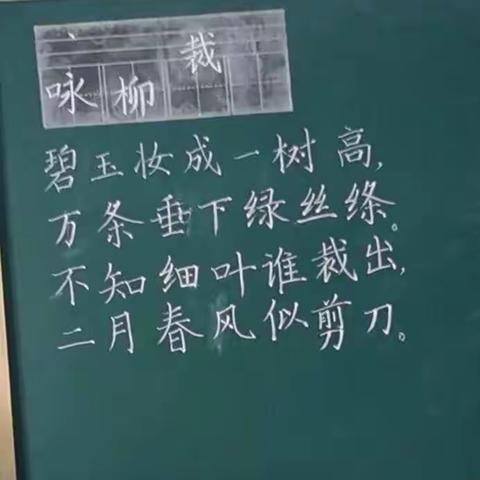 丶 裁
咏柳
碧玉妆成一树高,
万条垂下绿丝绦。
不知细叶谁裁出,
二月春风似剪刀。